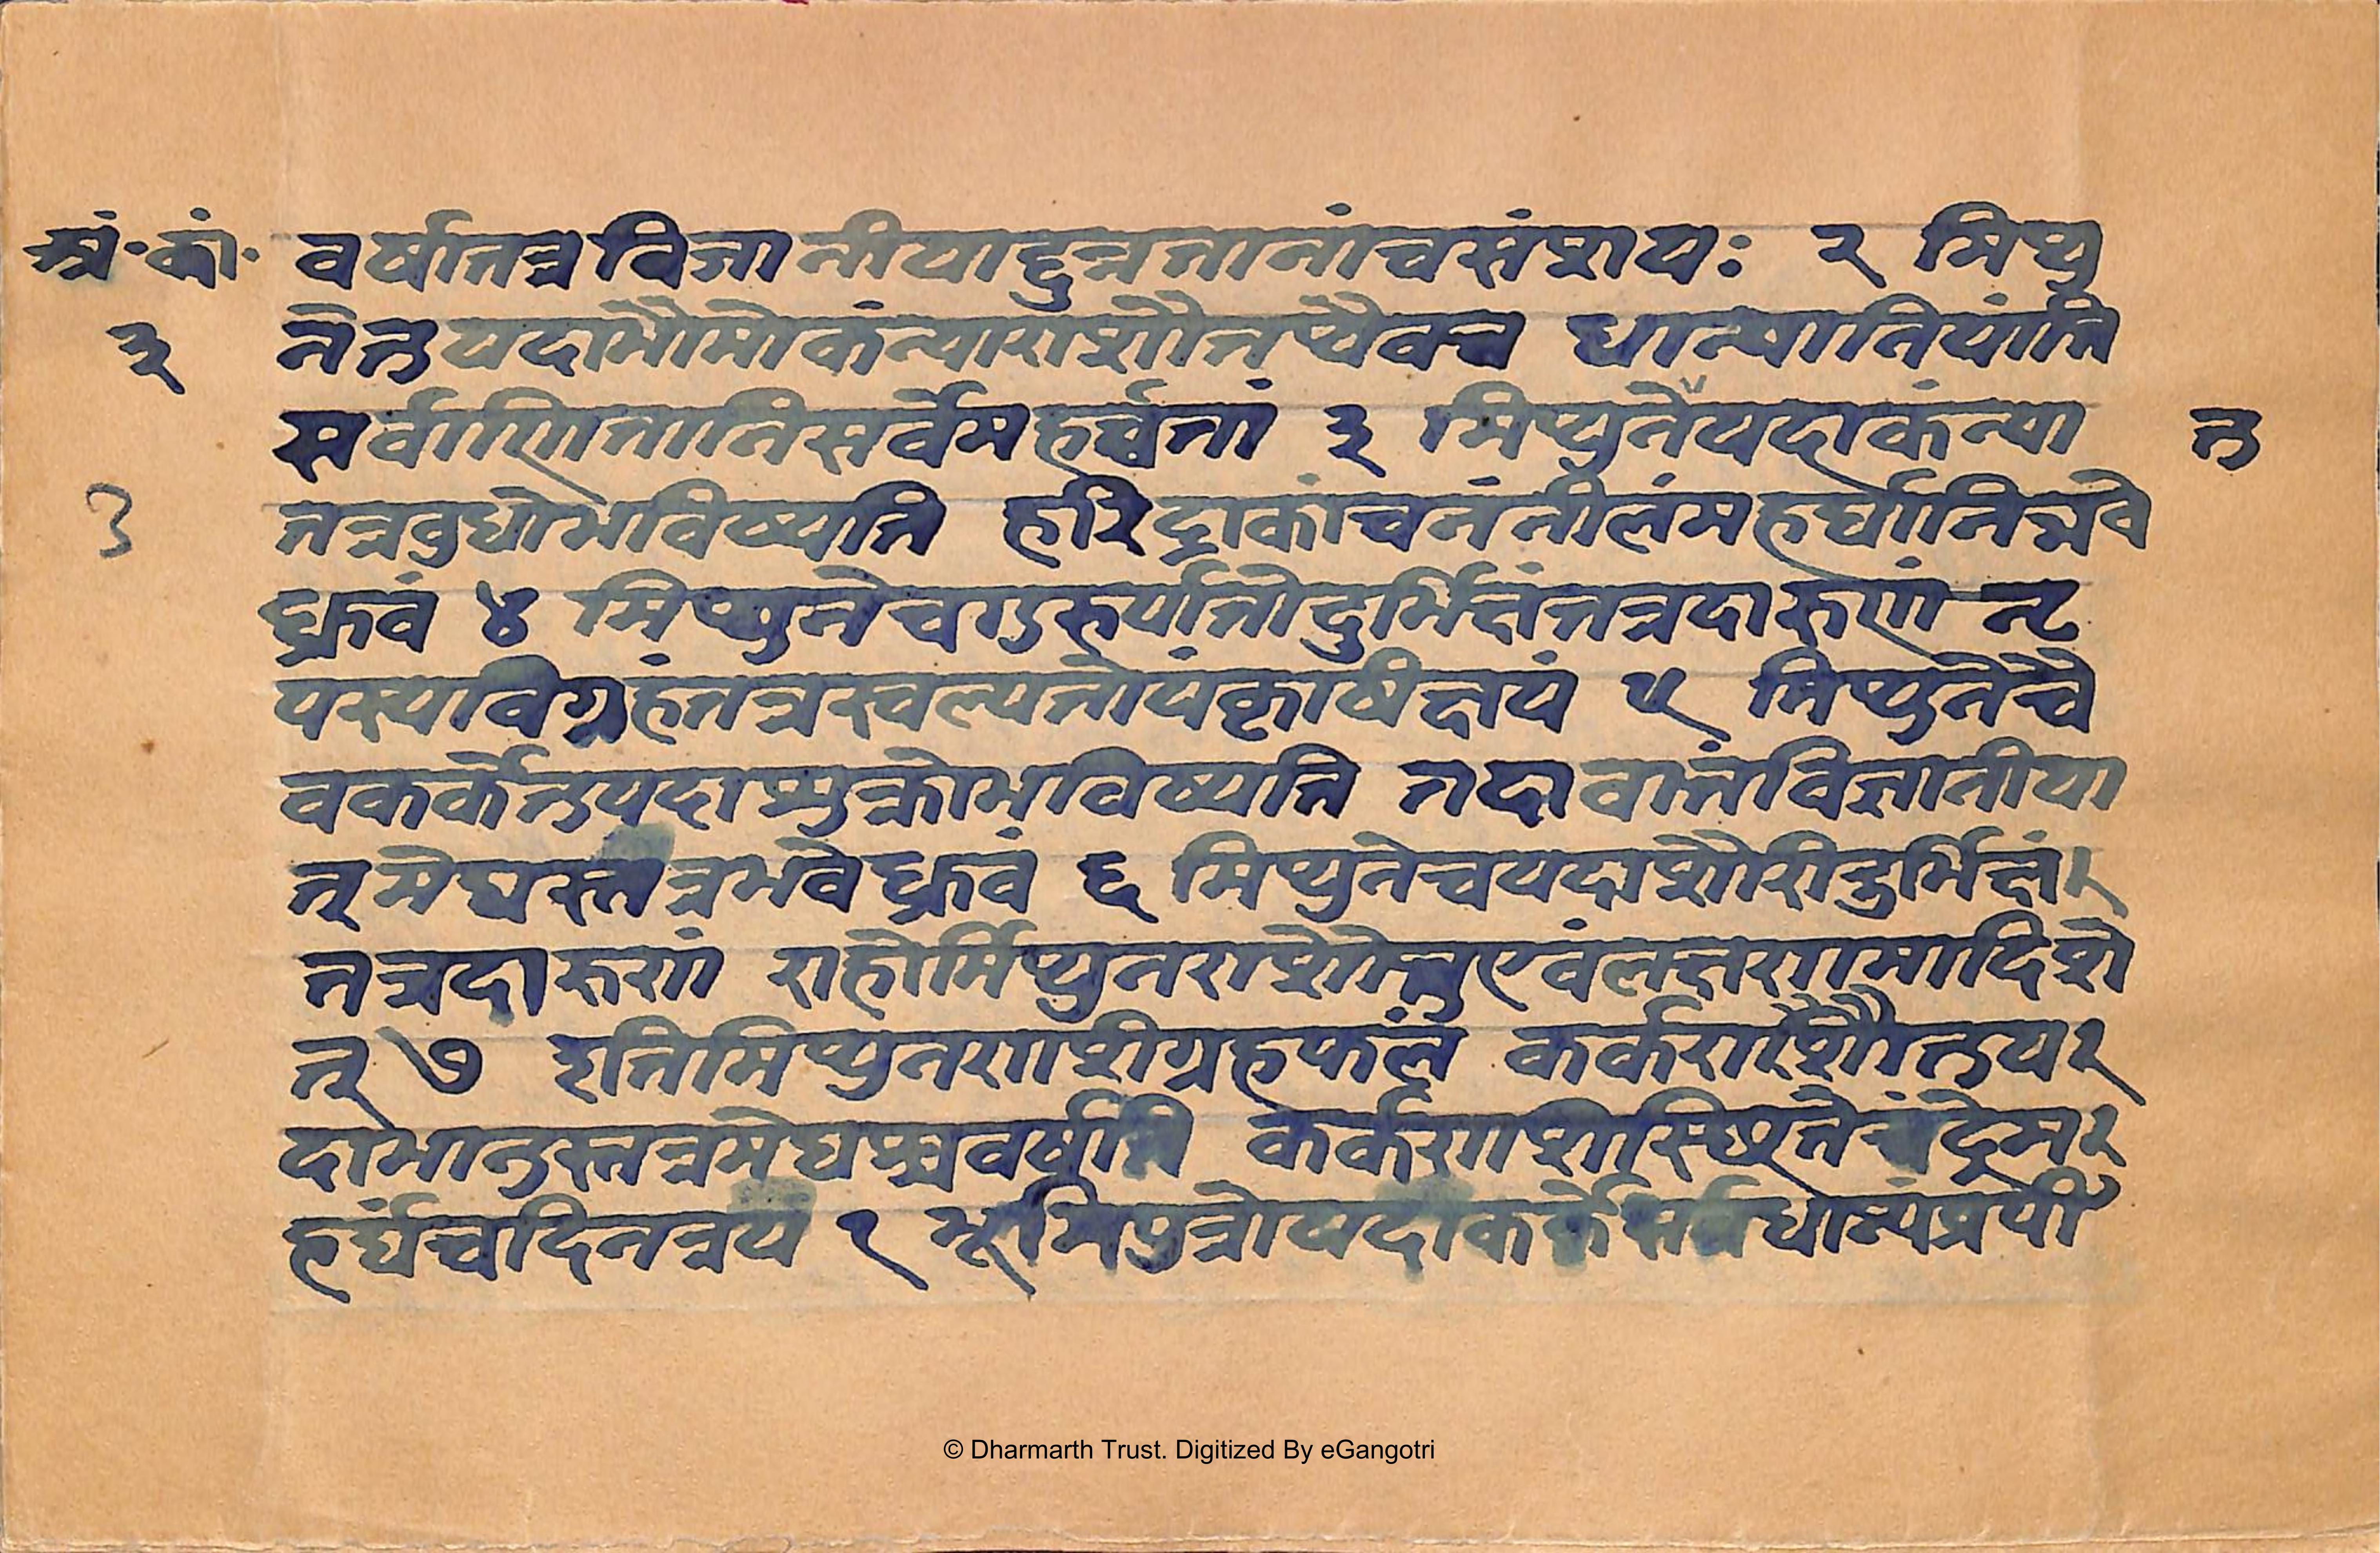 अं·कां· वर्षातत्रविजानीयादुन्नतानांचसंशयः २ मिथु
३ नेतुयदाभौमोकंन्याराशौतथैवच धान्यानियांति
सर्वाणितानिसर्वेमहर्घतां ३ मिथुनेयदाकंन्या तु
३ तत्रबुधोभविष्यति हरिद्राकांचनंनीलंमहर्घानिभवे
ध्रुवं ४ मिथुनेचगुरुर्यातोदुर्भिक्षंतत्रदारुणं नृ
पस्यविग्रहंतत्रस्वल्पतोयंकृषीक्षयं ५ मिथुनेचै
वकर्केतुयदाशुक्रोभविष्यति तदावातंविजानीया
त् मेघस्तत्रभवेध्रुवं ६ मिथुनेचयदाशौरीदुर्भिक्षं
तत्रदारुणं राहोर्मिथुनराशेस्तुएवंलक्षणमादिशे
त् ७ इतिमिथुनराशीग्रहफलं कर्कराशौतुय
दाभानुस्तत्रमेघश्चवर्षति कर्कराशिस्थितेचंद्रेम
हर्घंचदिनत्रयं १ भूमिपुत्रोयदाकर्केसर्वधान्यंप्रपी
© Dharmarth Trust. Digitized By eGangotri